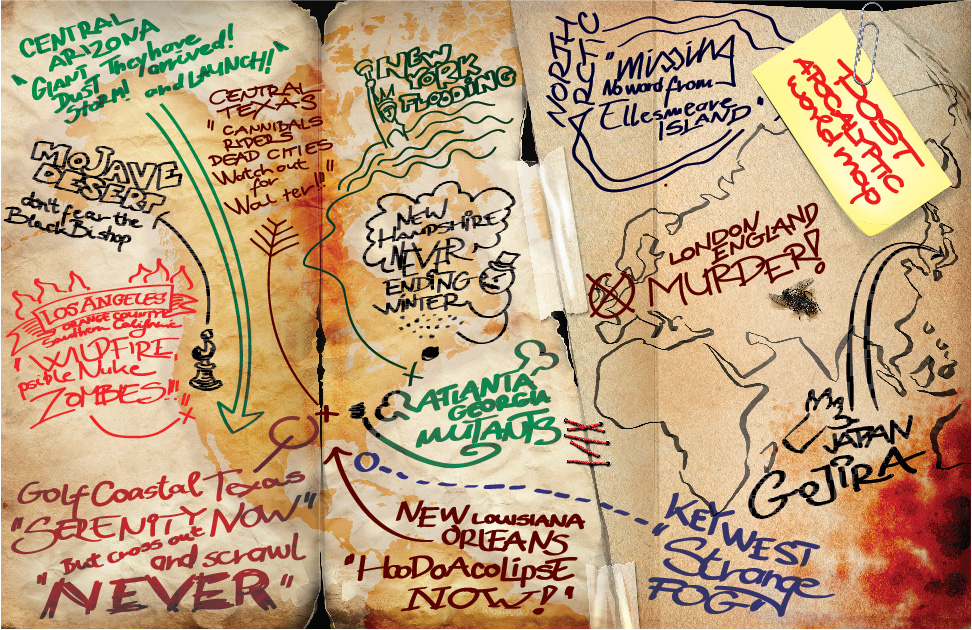 CENTRAL
ARIZONA
"GIANT They have
Dust arrived!
STORM! and LAUNCH!"
CENTRAL
TEXAS
"CANNIBALS
RIDERS
DEAD CITIES
Watch out
for
Walter!!"
NEW
YORK
FLOODING
NORTH
ARCTIC
"missing
No word from
Ellesmeare
ISLAND"
POST
APOCALYPTIC
world map
MOJAVE
DESERT
don't fear the
Black Bishop
NEW
HAMPSHIRE
NEVER
ENDING
WINTER
LONDON
ENGLAND
MURDER!
LOS ANGELES
ORANGE COUNTY
Southern California
"WILDFIRE,
psible Nuke
ZOMBIES!!"
ATLANTA
GEORGIA
MUTANTS
JAPAN
GOJIRA
Golf Coastal Texas
"SERENITY NOW"
But cross out
and scrawl
"NEVER"
NEW LOUISIANA
ORLEANS
"HooDoAcoLipsE
NOW!"
KEY WEST
Strange
FOG